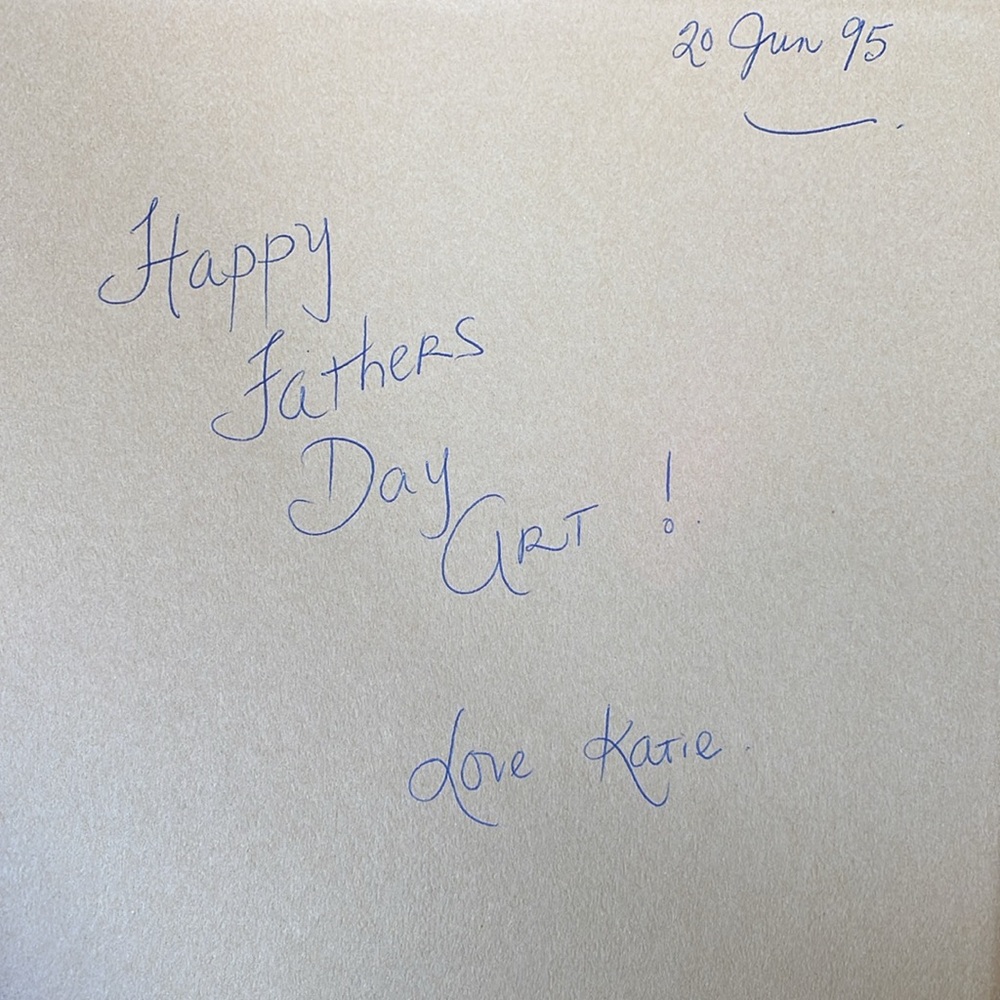 20 Jun 95
Happy
Fathers
Day
Art !
Love Katie.